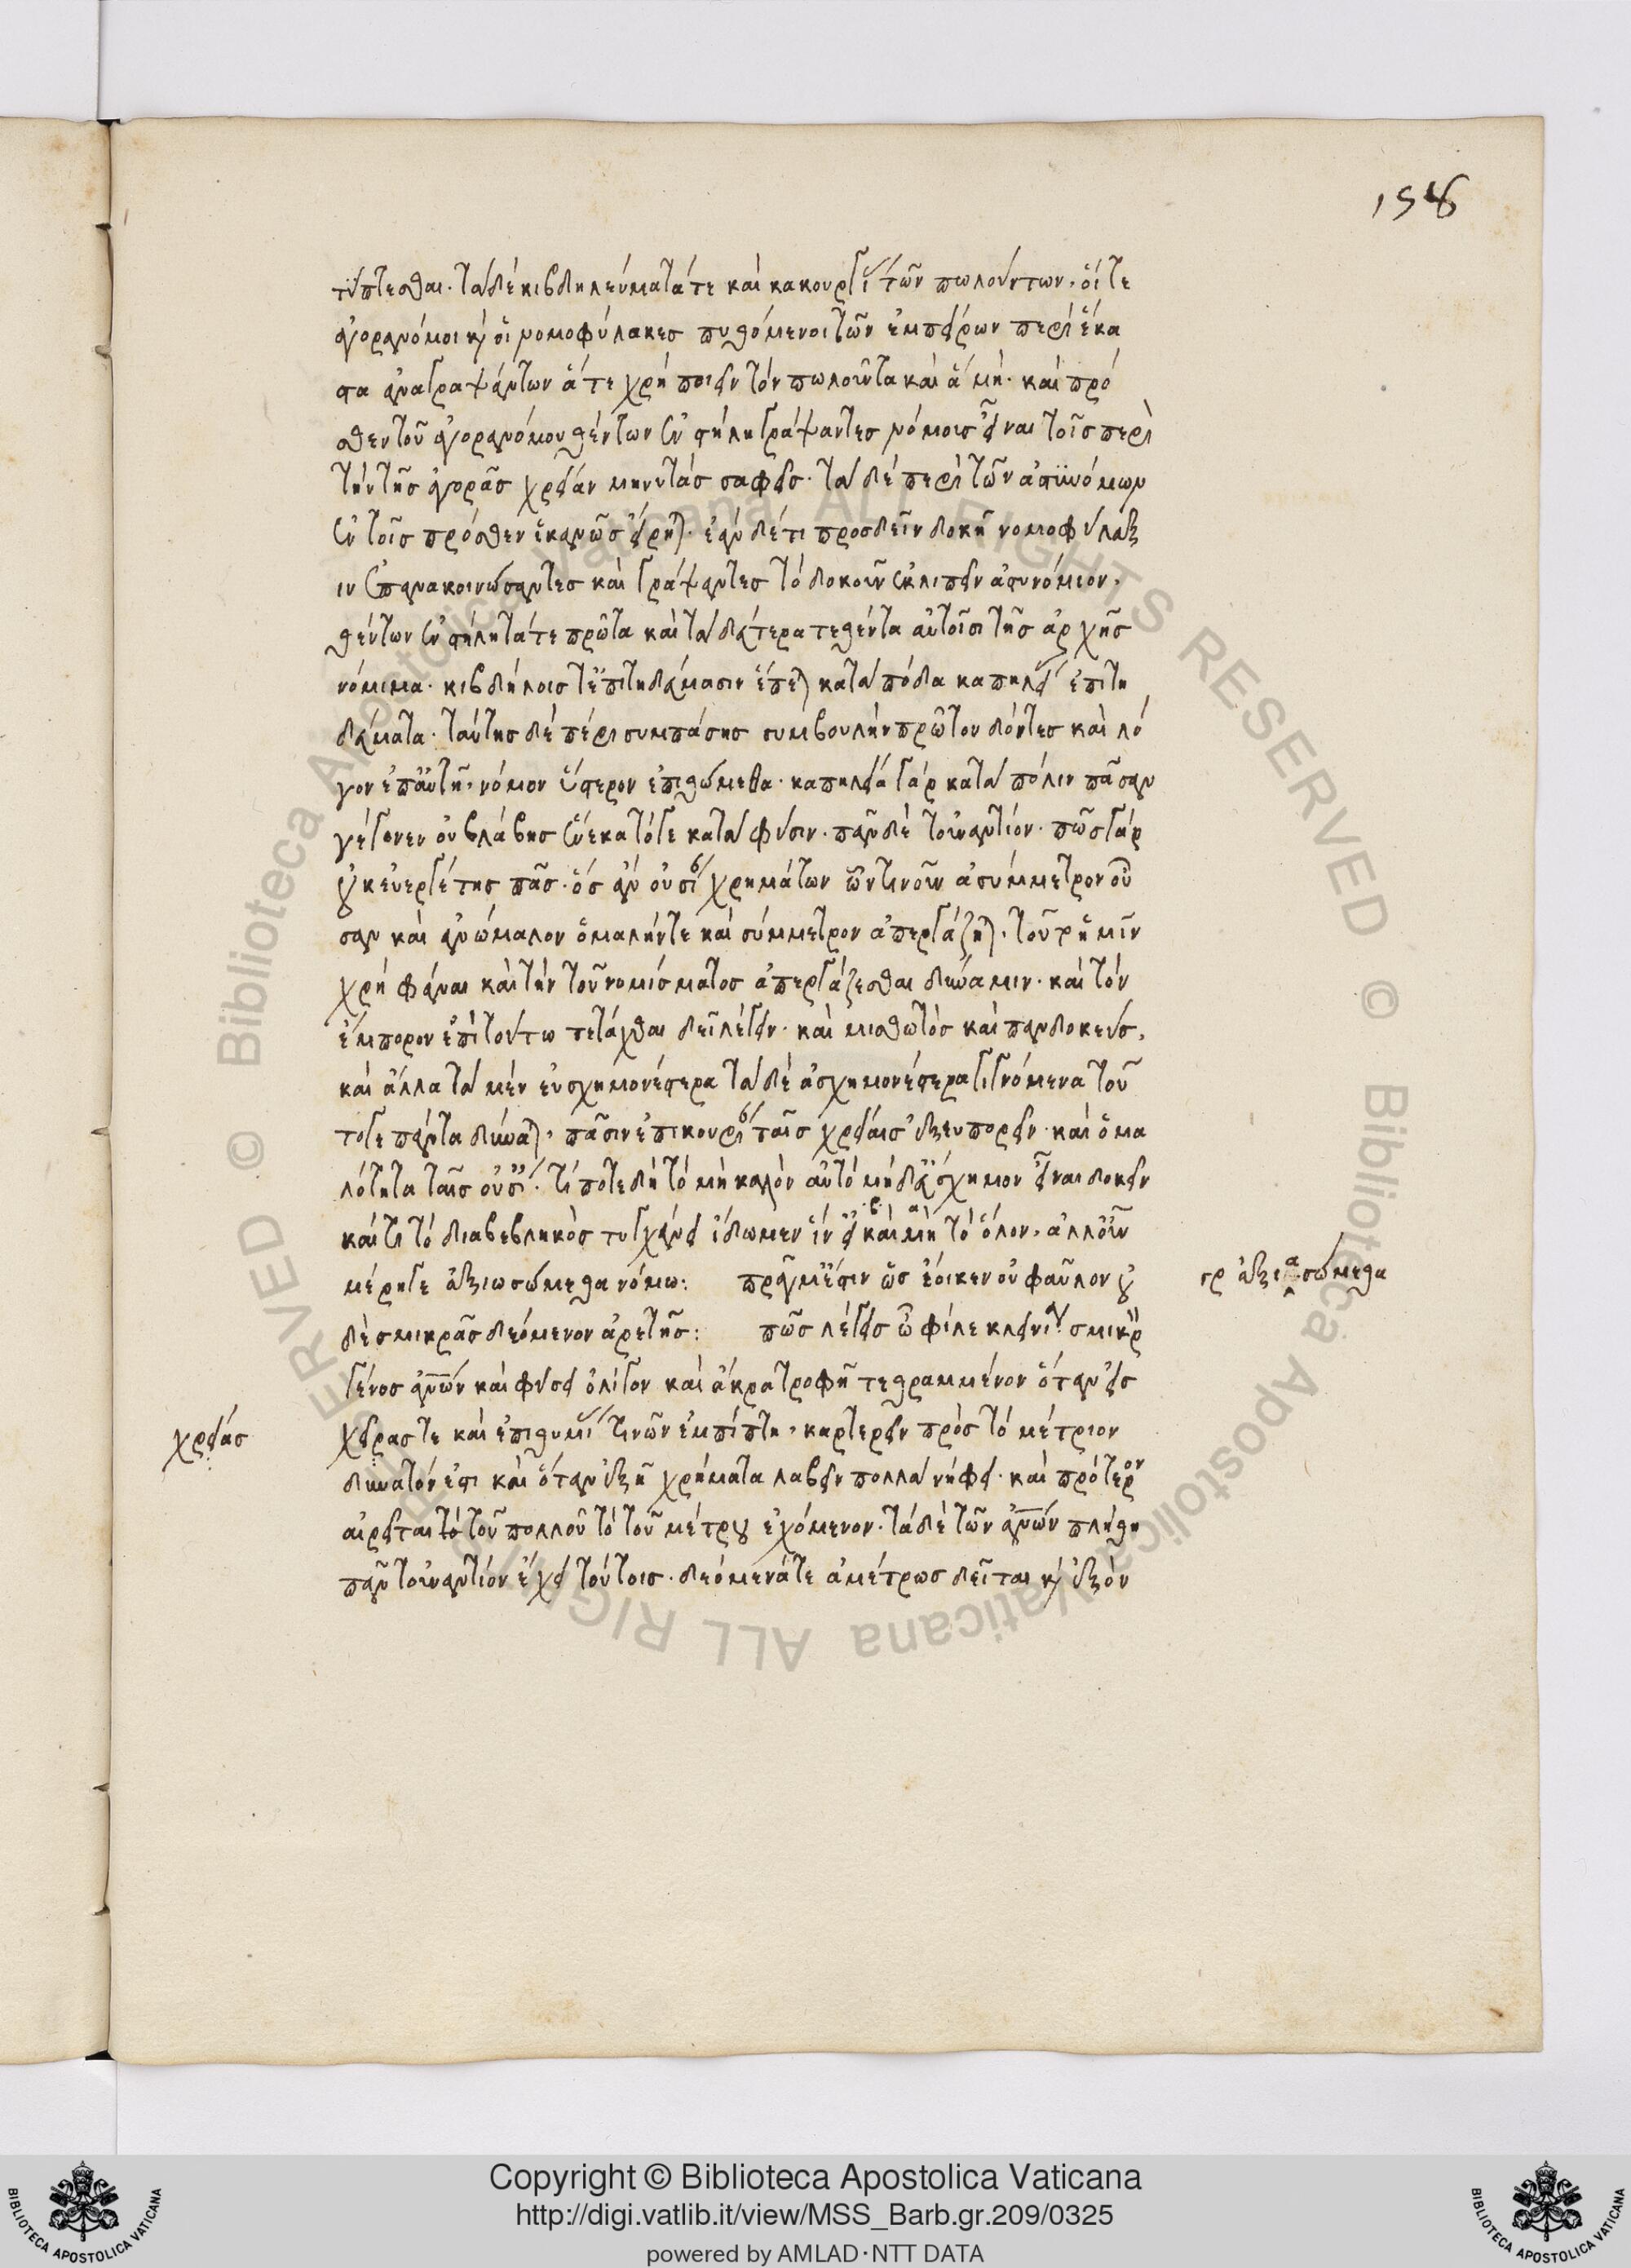 158
τύπτεσθαι. τὰ δὲ κιβδηλεύματά τε καὶ κακουργίας τῶν πωλούντων, οἵ τε
ἀγορανόμοι καὶ οἱ νομοφύλακες πυθόμενοι τῶν ἐμπείρων περὶ ἕκα
στα ἀναγραψάντων ἅ τε χρὴ ποιεῖν τὸν πωλοῦντα καὶ ἃ μή. καὶ πρό
σθεν τοῦ ἀγορανόμου θέντων ἐν στήλῃ γράψαντες νόμοις εἶναι τοῖς περὶ
τὴν τῆς ἀγορᾶς χρείαν μηνυτὰς σαφεῖς. τὰ δὲ περὶ τῶν ἀστυνόμων
ἐν τοῖς πρόσθεν ἱκανῶς εἴρηται. ἐὰν δέ τι προσδεῖν δοκῇ νομοφύλαξ
ιν ἐπανακοινώσαντες καὶ γράψαντες τὸ δοκοῦν ἐκλιπεῖν ἀστυνόμιον,
θέντων ἐν στήλῃ τά τε πρῶτα καὶ τὰ δεύτερα τεθέντα αὐτοῖσι τῆς ἀρχῆς
νόμιμα. κιβδήλοις τ' ἐπιτηδεύμασιν ἕπεται κατὰ πόδα καπηλείας ἐπιτη
δεύματα. ταύτης δὲ πέρι συμπάσης συμβουλὴν πρῶτον δόντες καὶ λό
γον ἐπ' αὐτῇ, νόμον ὕστερον ἐπιθώμεθα. καπηλεία γὰρ κατὰ πόλιν πᾶσαν
γέγονεν οὐ βλάβης ἕνεκα τό γε κατὰ φύσιν. πᾶν δὲ τοὐναντίον. πῶς γὰρ
οὐκ εὐεργέτης πᾶς. ὃς ἂν οὐσίαν χρημάτων ὡντινοῦν ἀσύμμετρον οὖ
σαν καὶ ἀνώμαλον ὁμαλήν τε καὶ σύμμετρον ἀπεργάζηται. τοῦτο ἡμῖν
χρὴ φάναι καὶ τὴν τοῦ νομίσματος ἀπεργάζεσθαι δύναμιν. καὶ τὸν
ἔμπορον ἐπὶ τούτῳ τετάχθαι δεῖ λέγειν. καὶ μισθωτὸς καὶ πανδοκεὺς,
καὶ ἄλλα τὰ μὲν εὐσχημονέστερα τὰ δὲ ἀσχημονέστερα γιγνόμενα τοῦ
τό γε πάντα δύναται, πᾶσιν ἐπικουρίαν ταῖς χρείαις ἐξευπορεῖν. καὶ ὁμα
λότητα ταῖς οὐσίαις. τί ποτε δὴ τὸ μὴ καλὸν αὐτὸ μηδ' εὔσχημον εἶναι δοκεῖν
καὶ τί τὸ διαβεβληκὸς τυγχάνει ἴδωμεν ἵν' εἰ καὶ μὴ τὸ ὅλον, ἀλλ' οὖν
μέρη γε ἀξιωσώμεθα νόμῳ: πρᾶγμ' ἔστιν ὡς ἔοικεν οὐ φαῦλον οὐ
δὲ σμικρᾶς δεόμενον ἀρετῆς: πῶς λέγεις ὦ φίλε κλεινία. σμικρὸν
γένος ἀνθρώπων καὶ φύσει ὀλίγον καὶ ἄκρᾳ τροφῇ τεθραμμένον ὅταν εἰς
χεῖράς τε καὶ ἐπιθυμίας τινῶν ἐμπίπτῃ, καρτερεῖν πρὸς τὸ μέτριον
δυνατόν ἐστι καὶ ὅταν ἐξῇ χρήματα λαβεῖν πολλὰ νήφει. καὶ πρότερον
αἱρεῖται τὸ τοῦ πολλοῦ τὸ τοῦ μέτρου ἐχόμενον. τὰ δὲ τῶν ἀνθρώπων πλήθη
πᾶν τοὐναντίον ἔχει τούτοις. δεόμενά τε ἀμέτρως δεῖται καὶ ἐξὸν
ἀξιασώμεθα
χρείας
Copyright © Biblioteca Apostolica Vaticana
http://digi.vatlib.it/view/MSS_Barb.gr.209/0325
powered by AMLAD·NTT DATA
BIBLIOTECA APOSTOLICA VATICANA
BIBLIOTECA APOSTOLICA VATICANA
© Biblioteca Apostolica Vaticana ALL RIGHTS RESERVED © Biblioteca Apostolica Vaticana ALL RIGHTS RESERVED